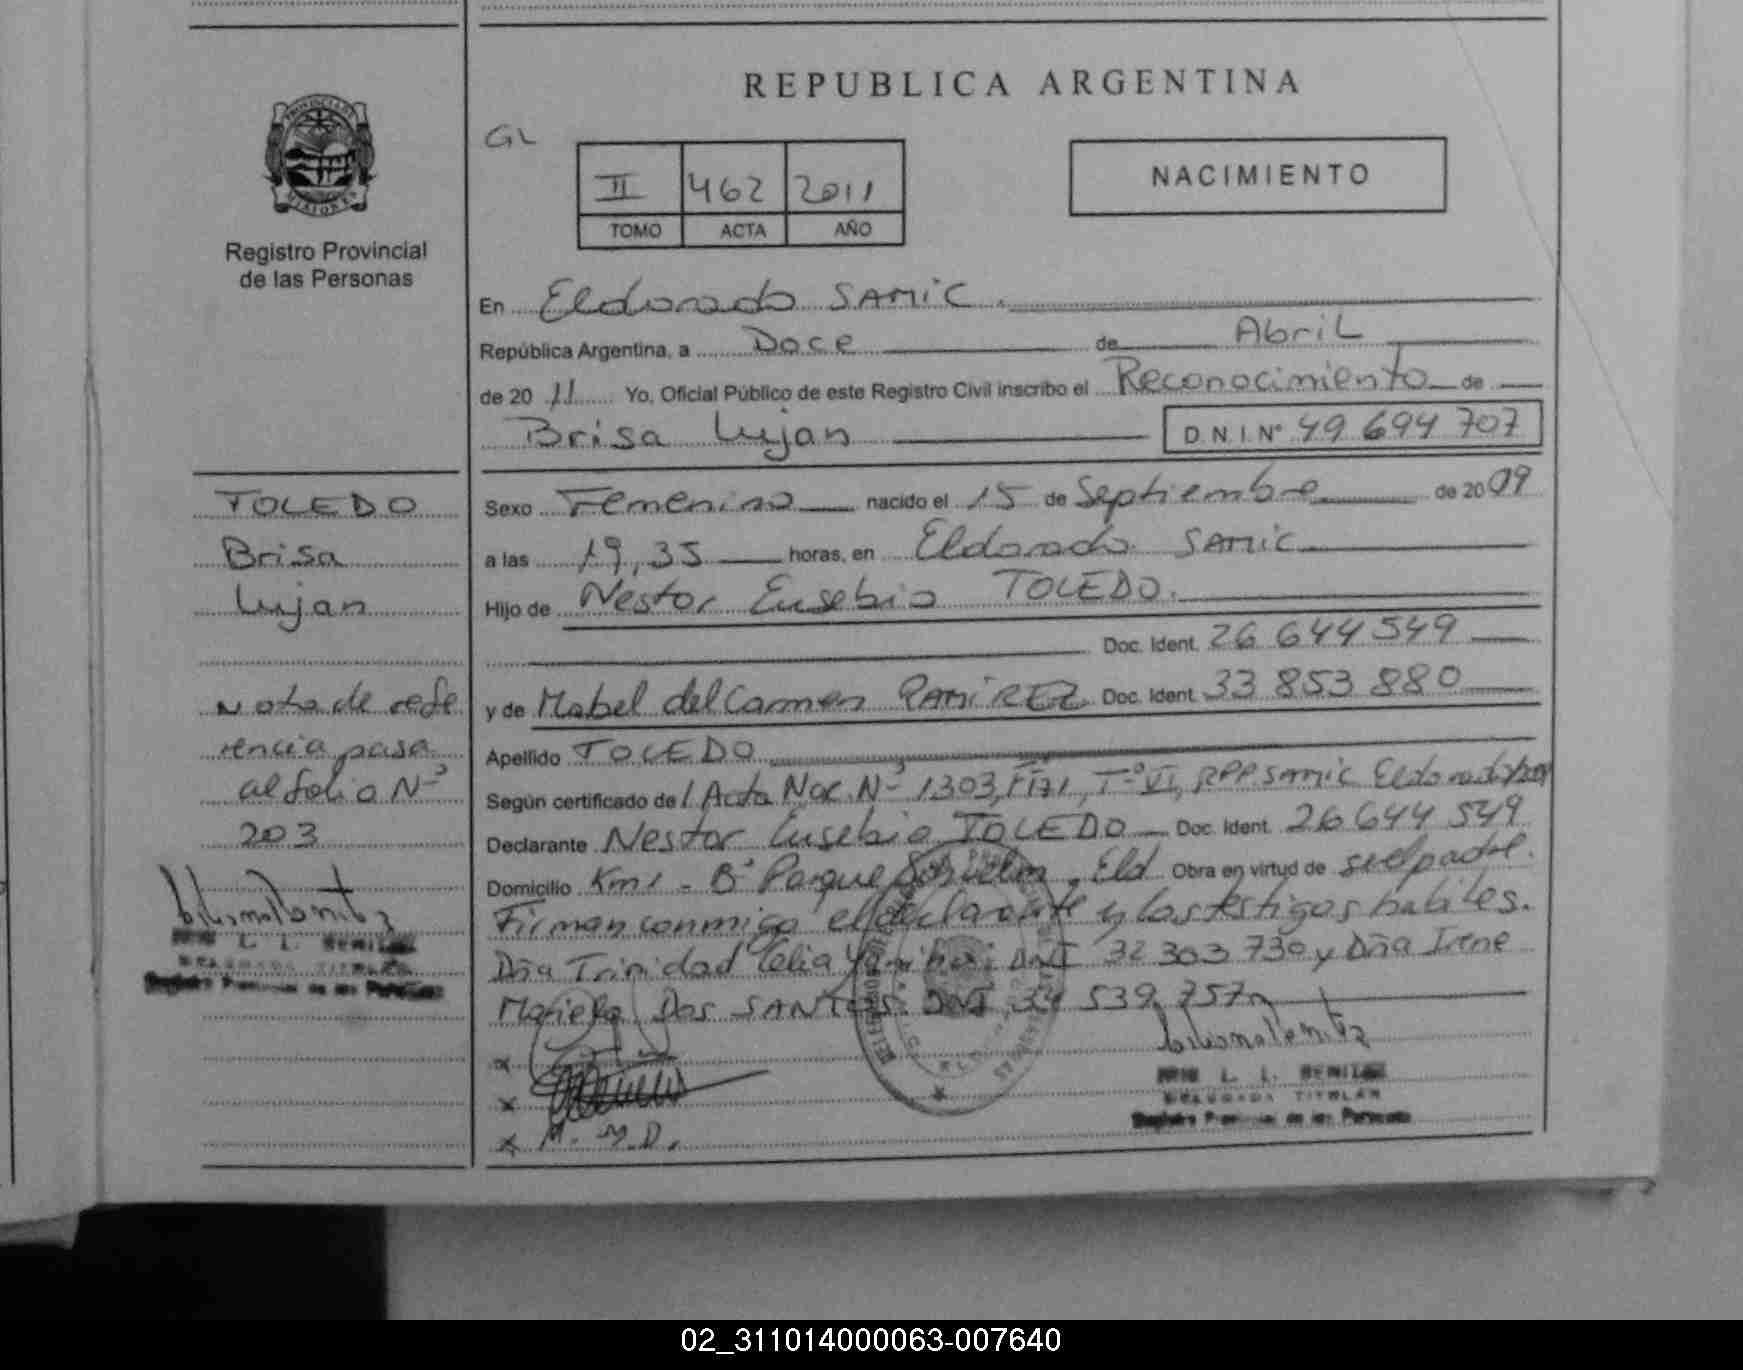 REPUBLICA ARGENTINA
GL
II 462 2011
TOMO ACTA AÑO
NACIMIENTO
PROVINCIA DE
MISIONES
Registro Provincial
de las Personas
En Eldorado SAMIC.
República Argentina, a Doce de Abril
de 20 11 Yo, Oficial Público de este Registro Civil inscribo el Reconocimiento de
Brisa Lujan D.N.I. Nº 49 694 707
TOLEDO
Brisa
Lujan
Nota de refe
rencia pasa
al folio Nº
203
L. L. BENITEZ
DELEGADA TITULAR
Registro Provincial de las Personas
Sexo Femenino nacido el 15 de Septiembre de 2009
a las 19,35 horas, en Eldorado SAMIC
Hijo de Nestor Eusebio TOLEDO.
Doc. Ident. 26 644 549
y de Mabel del Carmen RAMIREZ Doc. Ident. 33 853 880
Apellido TOLEDO
Según certificado de Acta Nac. Nº 1303, Fº171, Tº VI, RPP. SAMIC Eldorado
Declarante Nestor Eusebio TOLEDO Doc. Ident. 26 644 549
Domicilio Km 1 - Bº Parque Eld Obra en virtud de ser el padre.
Firman conmigo el declarante y los testigos habiles.
Dña Trinidad Celia DNI 32 303 730 y Dña Irene
Mariela Dos SANTOS DNI 539 757
x
x
x M. M. D.
L. L. BENITEZ
DELEGADA TITULAR
Registro Provincial de las Personas
02_311014000063-007640